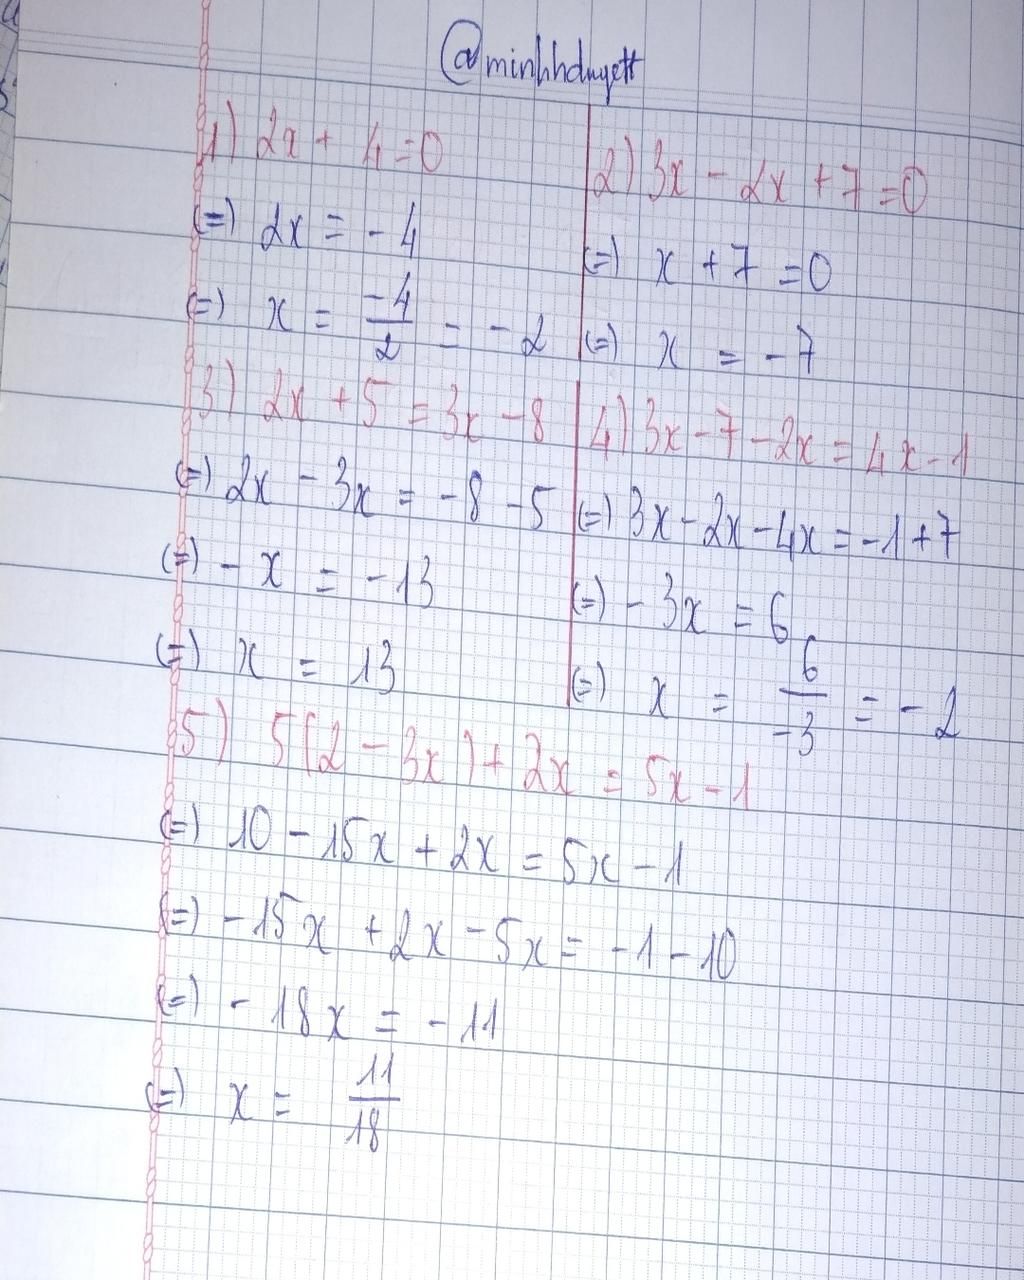 @minhhduyett
1) 2x + 4 = 0
(=) 2x = -4
(=) x = -4/2 = -2
2) 3x - 2x + 7 = 0
(=) x + 7 = 0
(=) x = -7
3) 2x + 5 = 3x - 8
(=) 2x - 3x = -8 - 5
(=) -x = -13
(=) x = 13
4) 3x - 7 - 2x = 4x - 1
(=) 3x - 2x - 4x = -1 + 7
(=) -3x = 6
(=) x = 6/-3 = -2
5) 5(2 - 3x) + 2x = 5x - 1
(=) 10 - 15x + 2x = 5x - 1
(=) -15x + 2x - 5x = -1 - 10
(=) -18x = -11
(=) x = 11/18